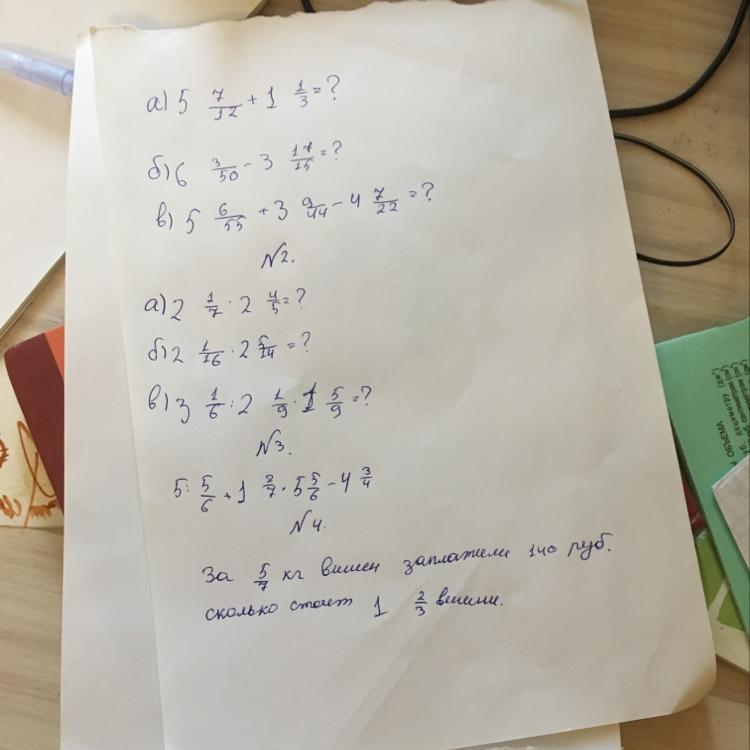 а) 5 7/12 + 1 1/3 = ?
б) 6 3/50 - 3 17/15 = ?
в) 5 6/55 + 3 9/44 - 4 7/22 = ?
№2.
а) 2 1/7 · 2 4/5 = ?
б) 2 1/16 : 2 5/14 = ?
в) 3 1/6 : 2 1/9 · 1 5/9 = ?
№3.
5 : 5/6 + 1 2/7 · 5 5/6 - 4 3/4
№4.
За 5/7 кг вишен заплатили 140 руб.
сколько стоит 1 2/3 вишни.
ОБЪЕМА